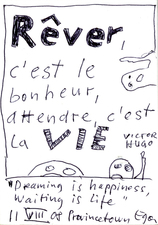 Rêver,
c'est le
bonheur,
attendre, c'est
la VIE
VICTOR
HUGO
"Dreaming is happiness,
Waiting is life"
11 VIII of Provincetown